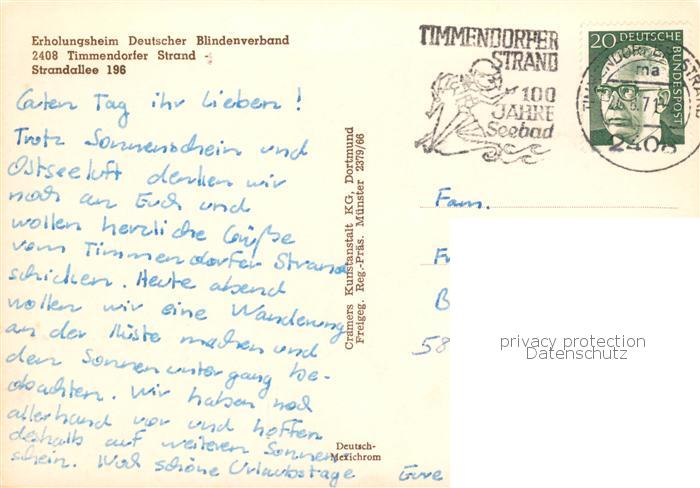 Erholungsheim Deutscher Blindenverband
2408 Timmendorfer Strand -
Strandallee 196
Guten Tag ihr Lieben!
Trotz Sonnenschein und
Ostseeluft denken wir
noch an Euch und
wollen herzliche Grüße
vom Timmendorfer Strand
schicken. Heute abend
wollen wir eine Wanderung
an der Küste machen und
den Sonnenuntergang be-
obachten. Wir haben noch
allerhand vor und hoffen
deshalb auf weiteren Sonnen-
schein. Und schöne Urlaubstage
Eure
Cramers Kunstanstalt KG, Dortmund
Freigeg. Reg.-Präs. Münster 2379/66
Deutsch-
Merichrom
TIMMENDORFER
STRAND
100
JAHRE
Seebad
20 DEUTSCHE
BUNDESPOST
TIMMENDORFER STRAND
ma
71
2408
Fam.
F
B
58
privacy protection
Datenschutz